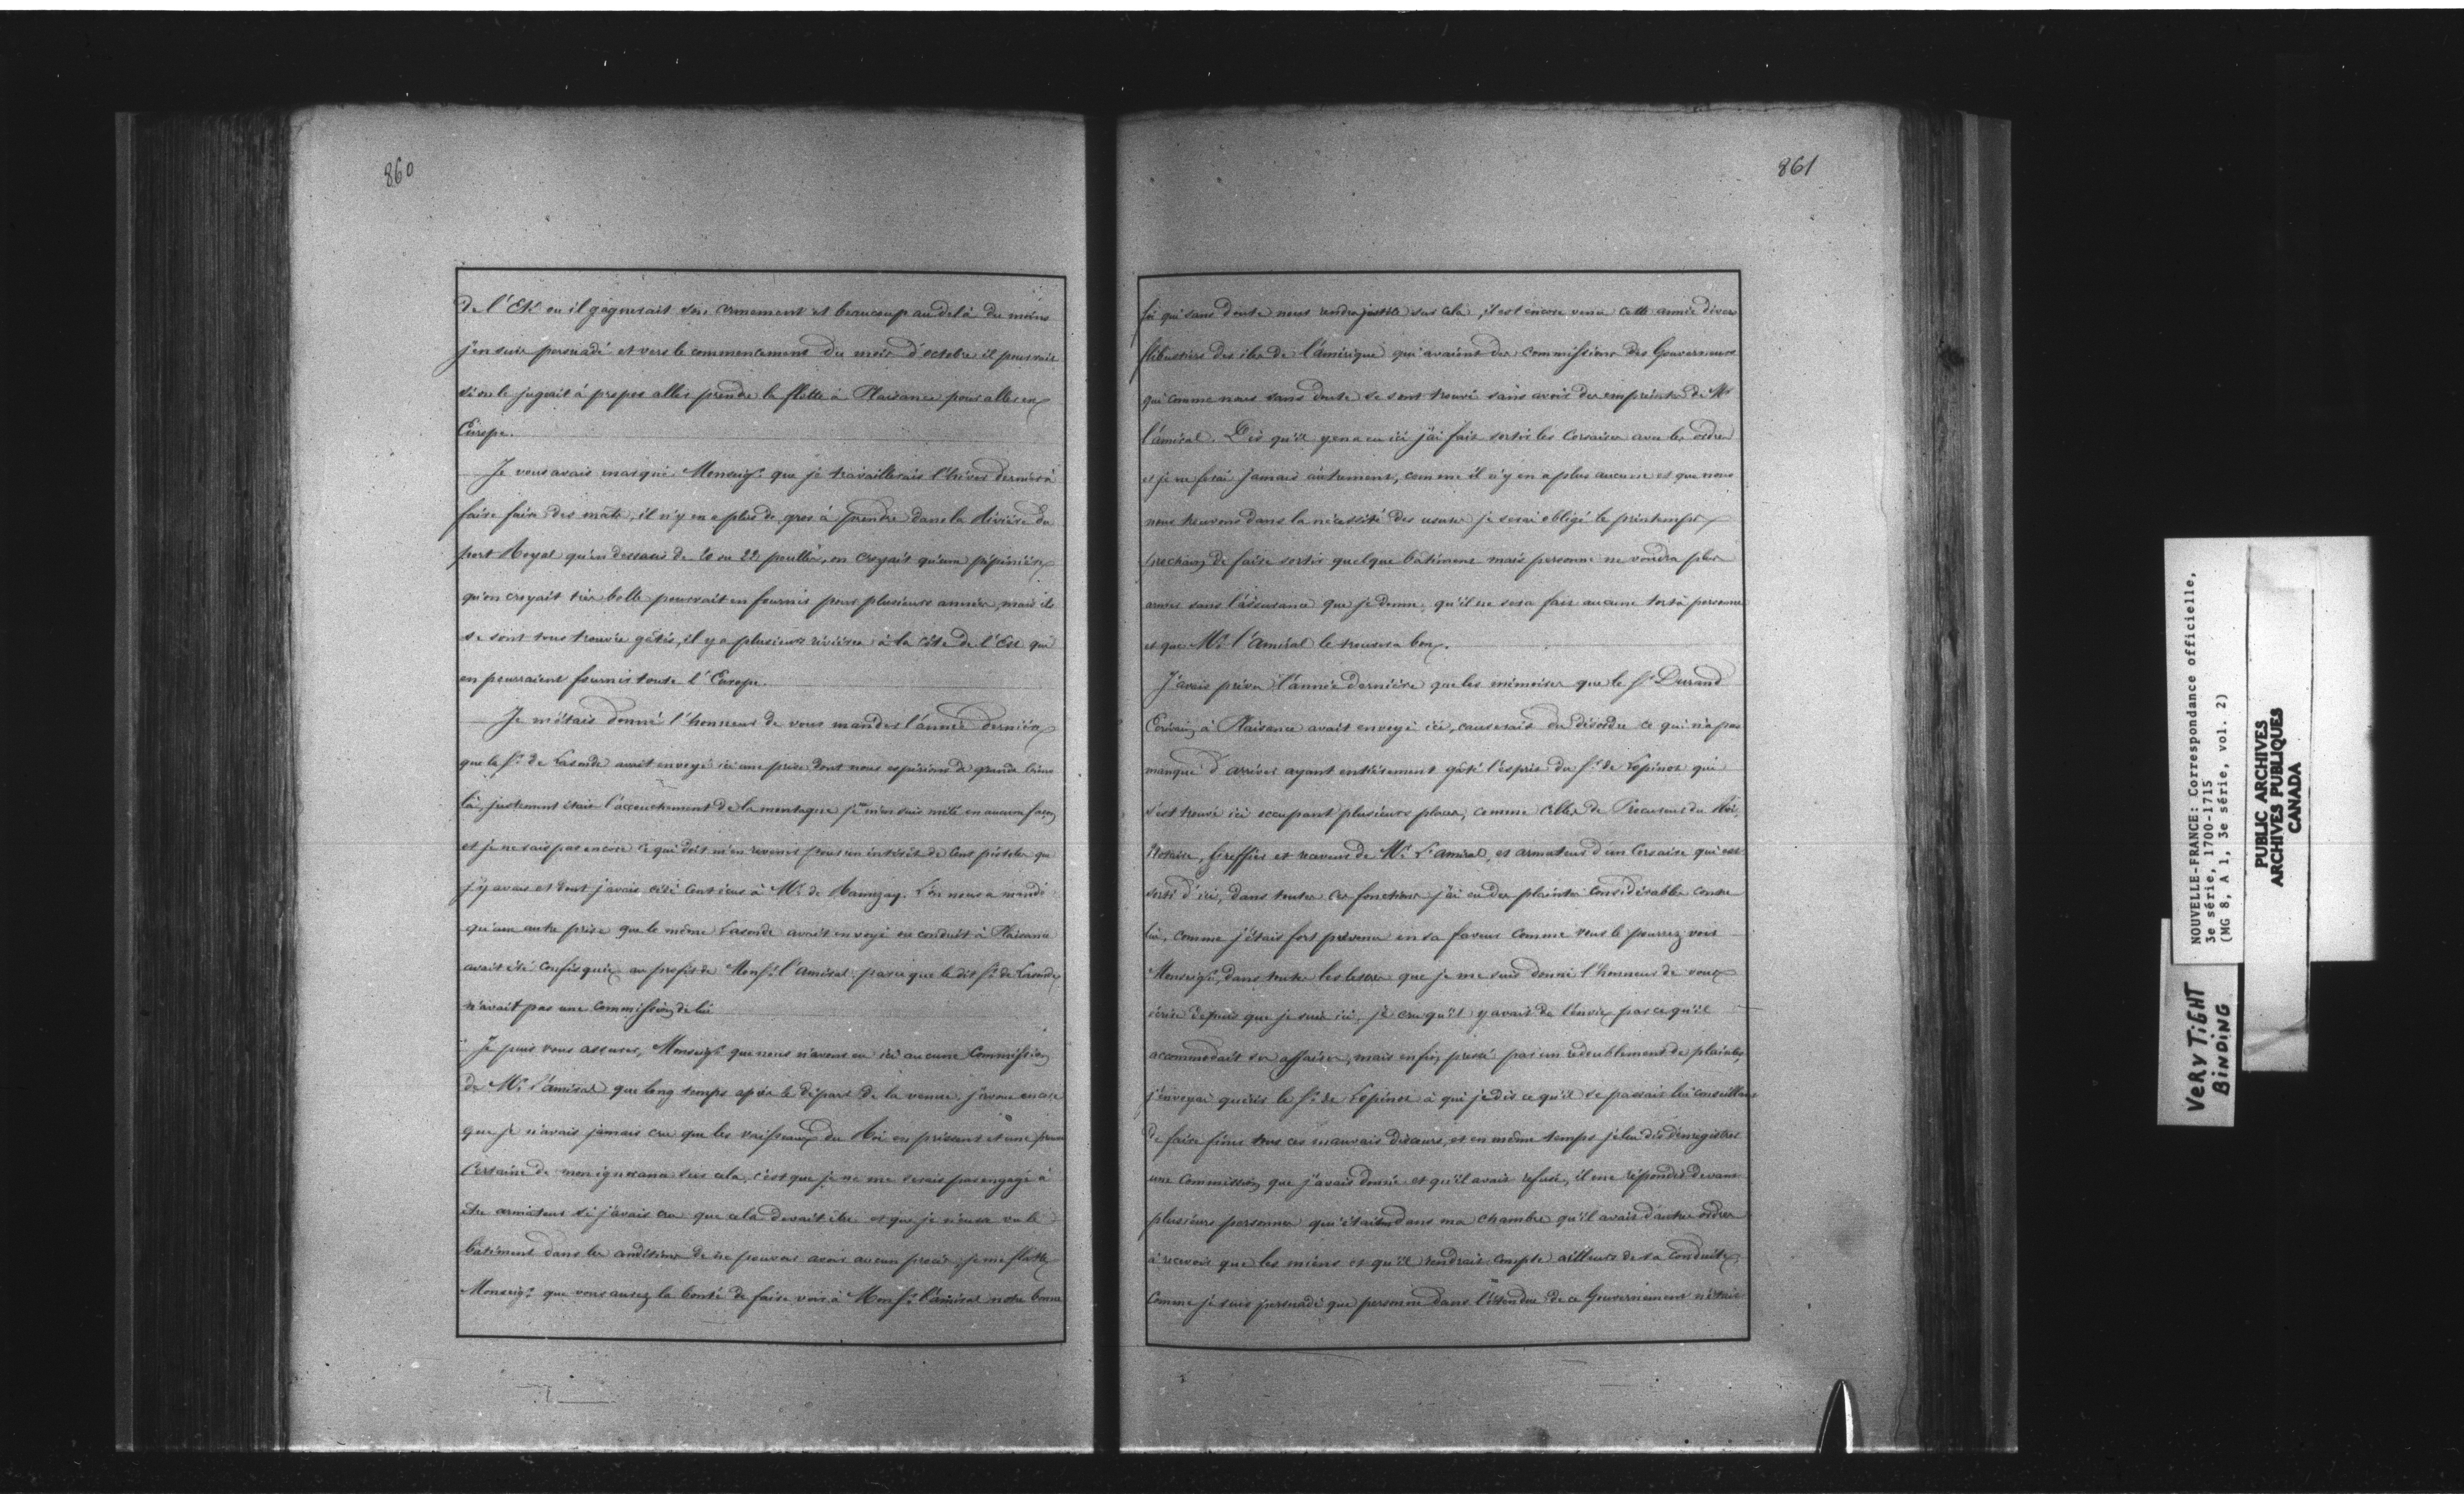 860
de l'Eté ou il gagnerait son armement et beaucoup au delà du moins
j'en suis persuadé et vers le commencement du mois d'octobre il pourrait
si on le jugeait à propos aller prendre la flotte à Plaisance pour aller en
Europe.
Je vous avais marqué Monseigr. que je travaillerais l'hiver dernier à
faire faire des mâts, il n'y en a plus de gros à prendre dans la Rivière du
port Royal qu'en dessous de 20 ou 22 pouces, on croyait qu'une pépinière
qu'on croyait très belle pourrait en fournir pour plusieurs années, mais ils
se sont tous trouvés gâtés, il y a plusieurs rivières à la côte de l'Est qui
en pourraient fournir toute l'Europe.
Je m'étais donné l'honneur de vous mander l'année dernière
que le Sr. de Lasonde avait envoyé ici une prise dont nous espérions de grands biens
là, justement était l'accouchement de la montagne je ne m'en suis mêlé en aucune façon
et je ne sais pas encore ce qui doit m'en revenir pour un intérêt de Cent pistoles que
j'y avais et dont j'avais cédé Cent écus à Mr. de Ramzay. L'on nous a mandé
qu'une autre prise que le même Lasonde avait envoyé ou conduit à Plaisance
avait été confisquée au profit de Monsr. l'Amiral parce que le dit Sr. de Lasonde
n'avait pas une Commission de lui
Je puis vous assurer, Monseigr. que nous n'avons eu ici aucune Commission
de Mr. l'Amiral que long temps après le départ de la venue. J'avoue encore
que je n'avais jamais cru que les vaisseaux du Roi en prissent et une preuve
Certaine de mon ignorance sur cela, c'est que je ne me serais pas engagé à
être armateur si j'avais cru que cela devait être et que je n'eusse vu le
bâtiment dans les conditions de ne pouvoir avoir aucun procès, je me flatte
Monseigr. que vous aurez la bonté de faire voir à Monsr. l'amiral notre bonne
861
foi qui sans doute nous rendra justice sur cela, il est encore venu cette année divers
flibustiers des iles de l'Amérique qui avaient des commissions des Gouverneurs
qui comme nous sans doute se sont trouvé sans avoir des empreintes de Mr
l'amiral. Dès qu'il y en a eu ici j'ai fait sortir les Corsaires avec les ordres
et je ne ferai jamais autrement, comme il n'y en a plus aucune et que nous
nous trouvons dans la nécessité des je serai obligé le printemps
prochain de faire sortir quelque bâtiment mais personne ne voudra plus
armer sans l'assurance que je donne, qu'il ne sera fait aucune tort à personne
et que Mr. l'Amiral le trouvera bon.
J'avais prévu l'année dernière que les mémoires que le Sr. Durand
Ecrivain à Plaisance avait envoyé ici, causerait du désordre ce qui n'a pas
manqué d'arriver ayant entièrement gâté l'esprit du Sr. de Lopinot qui
s'est trouvé ici occupant plusieurs places, comme celles de Procureur du Roi,
Notaire, Greffier et receveur de Mr. L'amiral, et armateur d'un Corsaire qui est
sorti d'ici, dans toutes ces fonctions j'ai eu des plaintes considérables contre
lui, comme j'étais fort prévenu en sa faveur comme vous le pourrez voir
Monseigr. dans toutes les lettres que je me suis donné l'honneur de vous
écrire depuis que je suis ici, je cru qu'il y avait de l'envie parce qu'il
accommodait ses affaires, mais enfin pressé par un redoublement de plaintes,
j'envoyai quérir le Sr. de Lopinot à qui je dis ce qu'il se passait lui conseillant
de faire finir tous ces mauvais discours, et en même temps je lui dis d'enregistrer
une Commission que j'avais donné et qu'il avait refusé, il me répondit devant
plusieurs personnes qui étaient dans ma chambre qu'il avait d'autres ordres
à recevoir que les miens et qu'il rendrait compte ailleurs de sa conduite,
Comme je suis persuadé que personne dans l'étendue de ce Gouvernement n'était
NOUVELLE-FRANCE: Correspondance officielle,
3e série, 1700-1715
(MG 8, A 1, 3e série, vol. 2)
PUBLIC ARCHIVES
ARCHIVES PUBLIQUES
CANADA
VERY TIGHT
BINDING